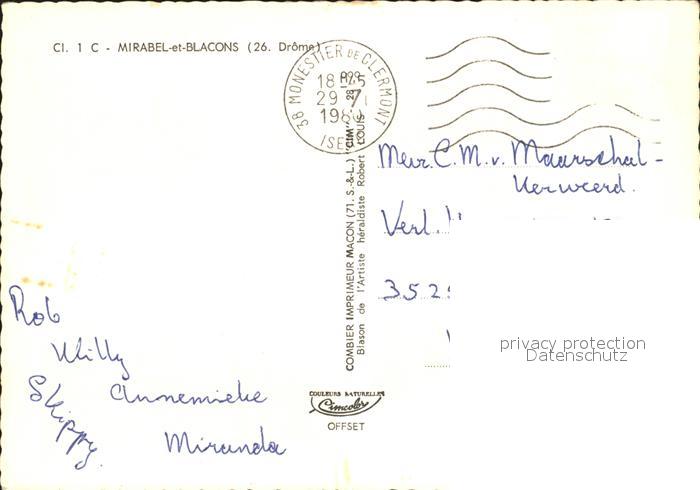 Cl. 1 C - MIRABEL-et-BLACONS (26. Drôme)
38 MONESTIER DE CLERMONT
29 - 7
ISERE
COMBIER IMPRIMEUR MACON (71. S.-&-L.) "CIM"
Blason de l'Artiste héraldiste Robert LOUIS
Mevr. C. M. v. Maarschal -
Verweerd.
352
privacy protection
Datenschutz
Rob
Willy
Skippy.
Annemieke
Miranda
COULEURS NATURELLES
Cimcolor
OFFSET